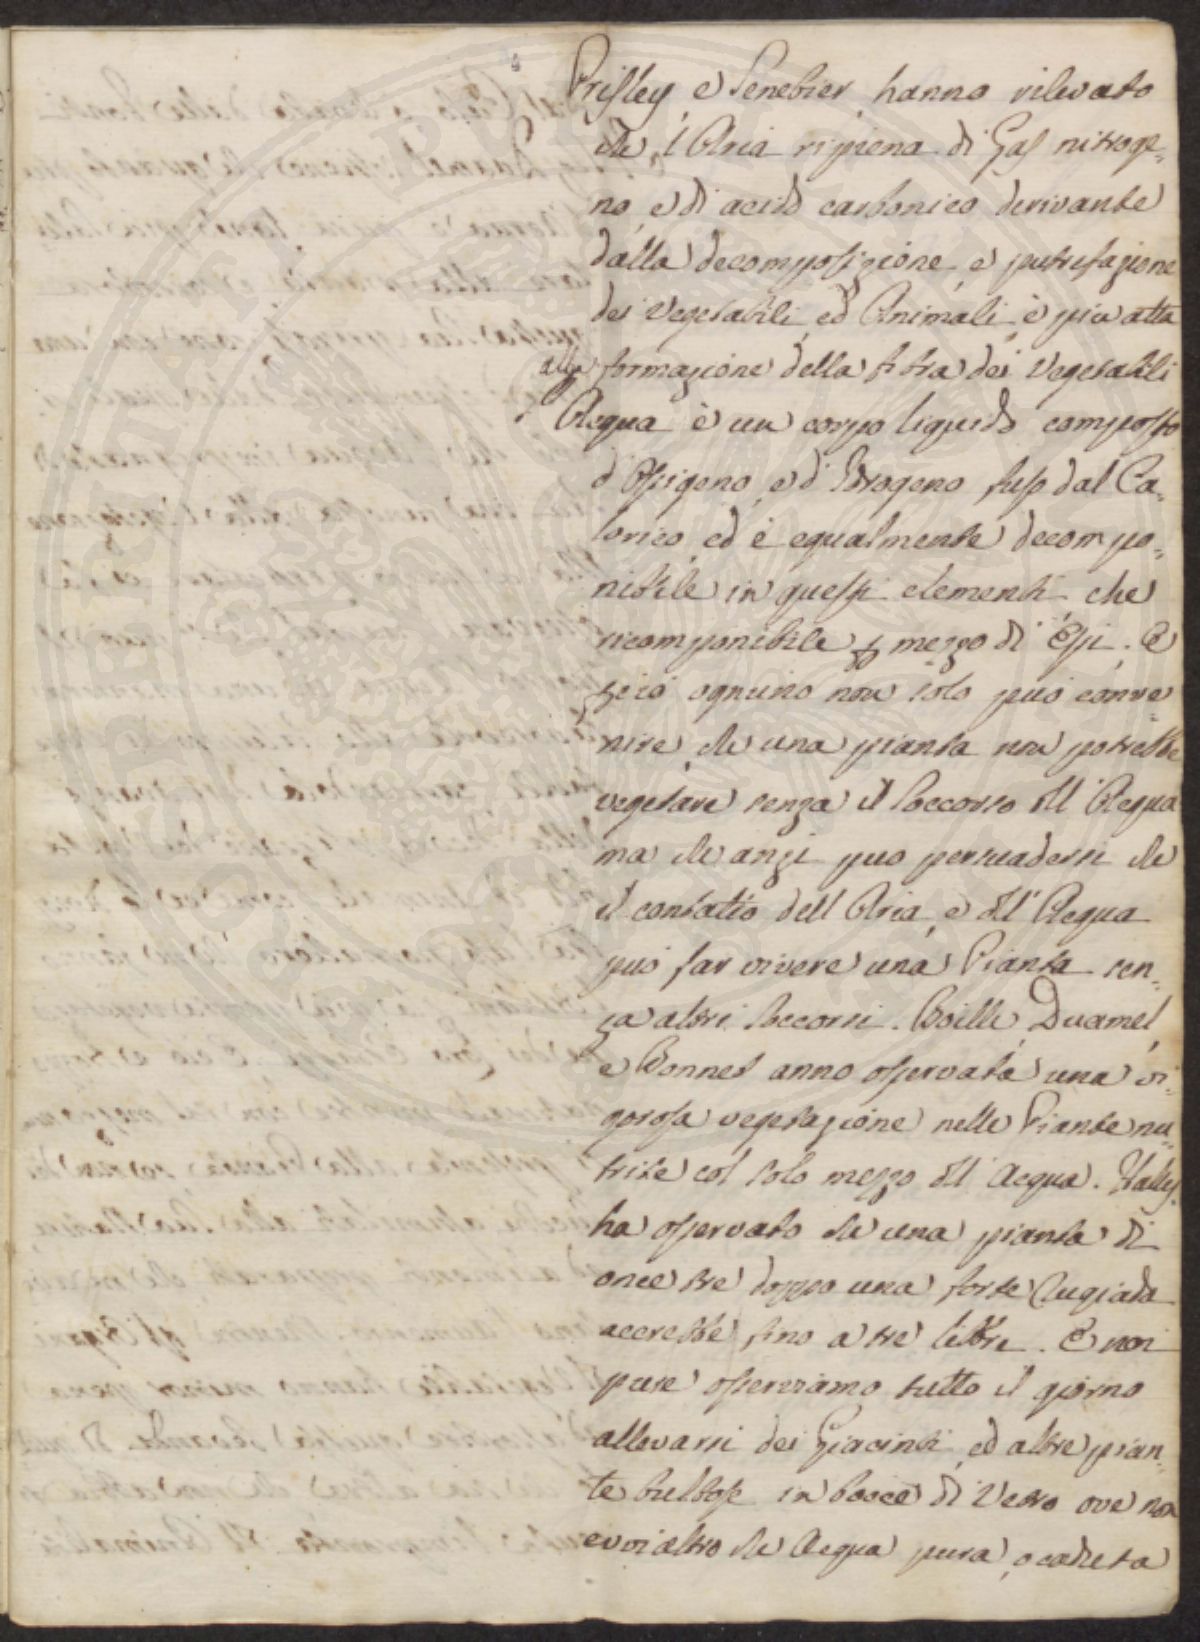 Prisley e Senebier hanno rilevato
che l'Aria ripiena di Gas nitroge-
no e di acido carbonico derivante
dalla decomposizione, e putrefazione
dei Vegetabili, ed Animali è più atta
alla formazione della fibra dei Vegetabili
Acqua è un corpo liquido composto
d'Ossigeno, e d'Idrogeno fuso dal Ca-
lorico, ed è egualmente decompo-
nibile in questi elementi, che
ricomponibile p mezzo di Essi. E
perciò ognuno non solo può conve-
nire, che una pianta non potrebbe
vegetare senza il soccorso dll'Acqua
ma che anzi puo persuadersi che
il contatto dell'Aria, e dll'Acqua
può far vivere una Pianta sen-
za altri soccorsi. Boille, Duamel,
e Bonnet anno osservata una vi-
gorosa vegetazione nelle Piante nu-
trite col solo mezzo dll'Acqua. Halley
ha osservato che una pianta di
once tre doppo una forte Rugiada
accrebbe fino a tre libbre. E noi
pure osserviamo tutto il giorno
allevarsi dei Giacinti, ed altre pian-
te bulbose in bocce di Vetro ove non
evvi altro che Acqua pura, o caduta